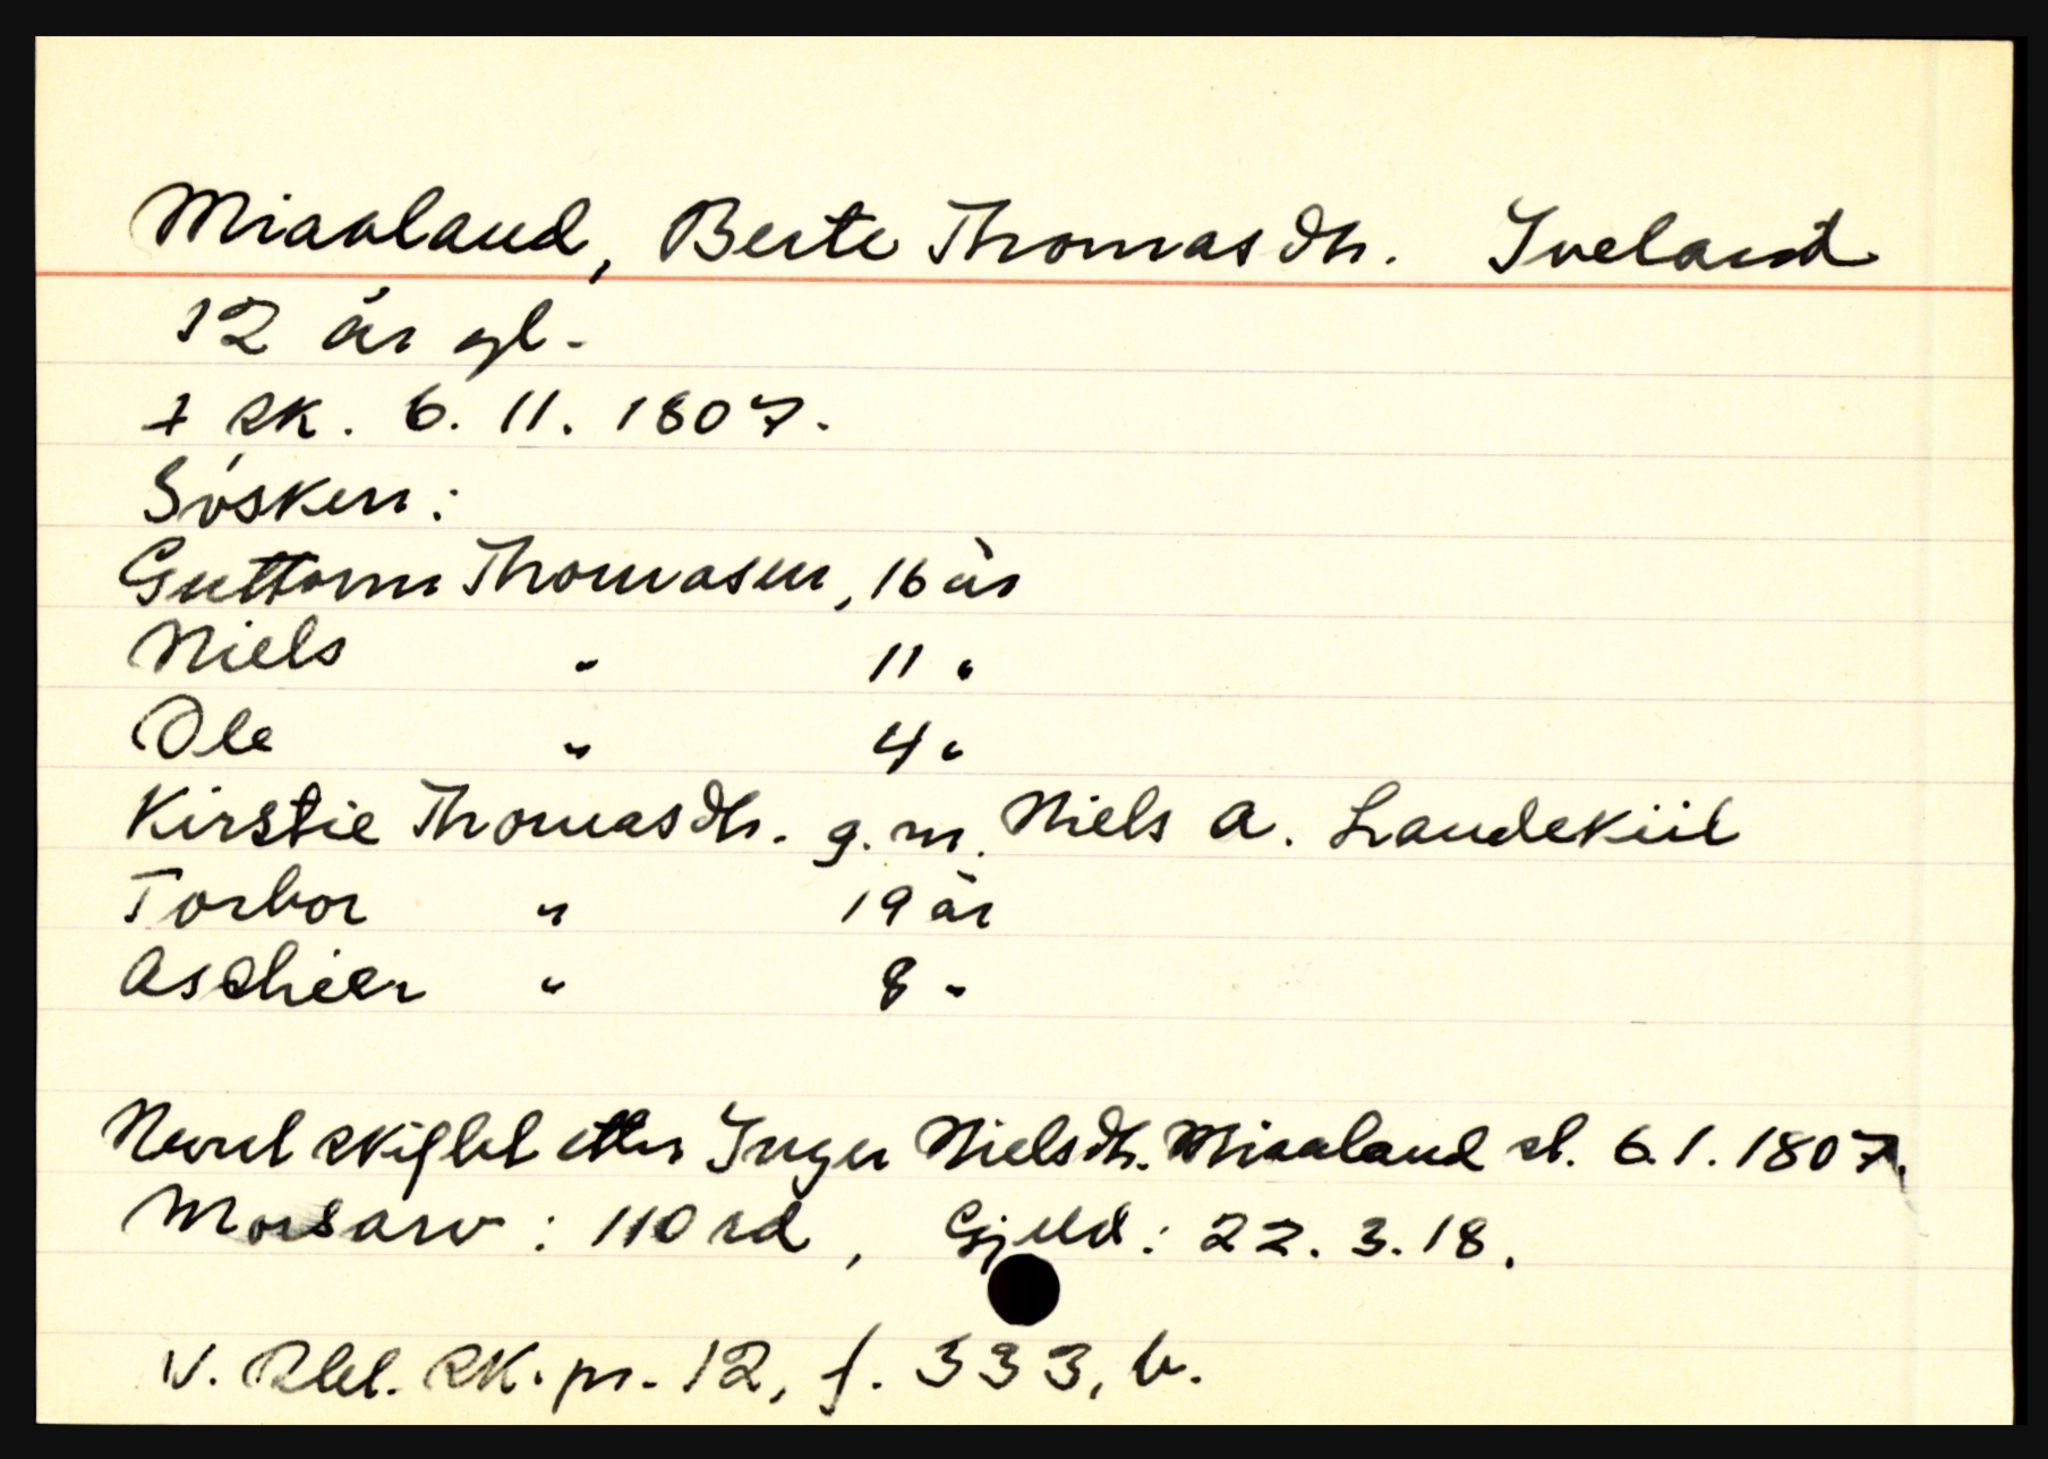 Miaaland, Berte Thomasdtr. Iveland
12 år gl.
† sk. 6. 11. 1807.
Søsken:
Guttorm Thomasen, 16 år
Niels " 11 "
Ole " 4 "
Kirstie Thomasdtr. g. m. Niels A. Landekiil
Torbor " 19 år
Aschier " 8 "
Nevnt skiftet etter Inger Nielsdtr. Miaaland sl. 6.1.1807.
Morsarv: 110 rd, Gjeld: 22. 3. 18.
V. Rbl. sk. pr. 12, f. 333, b.